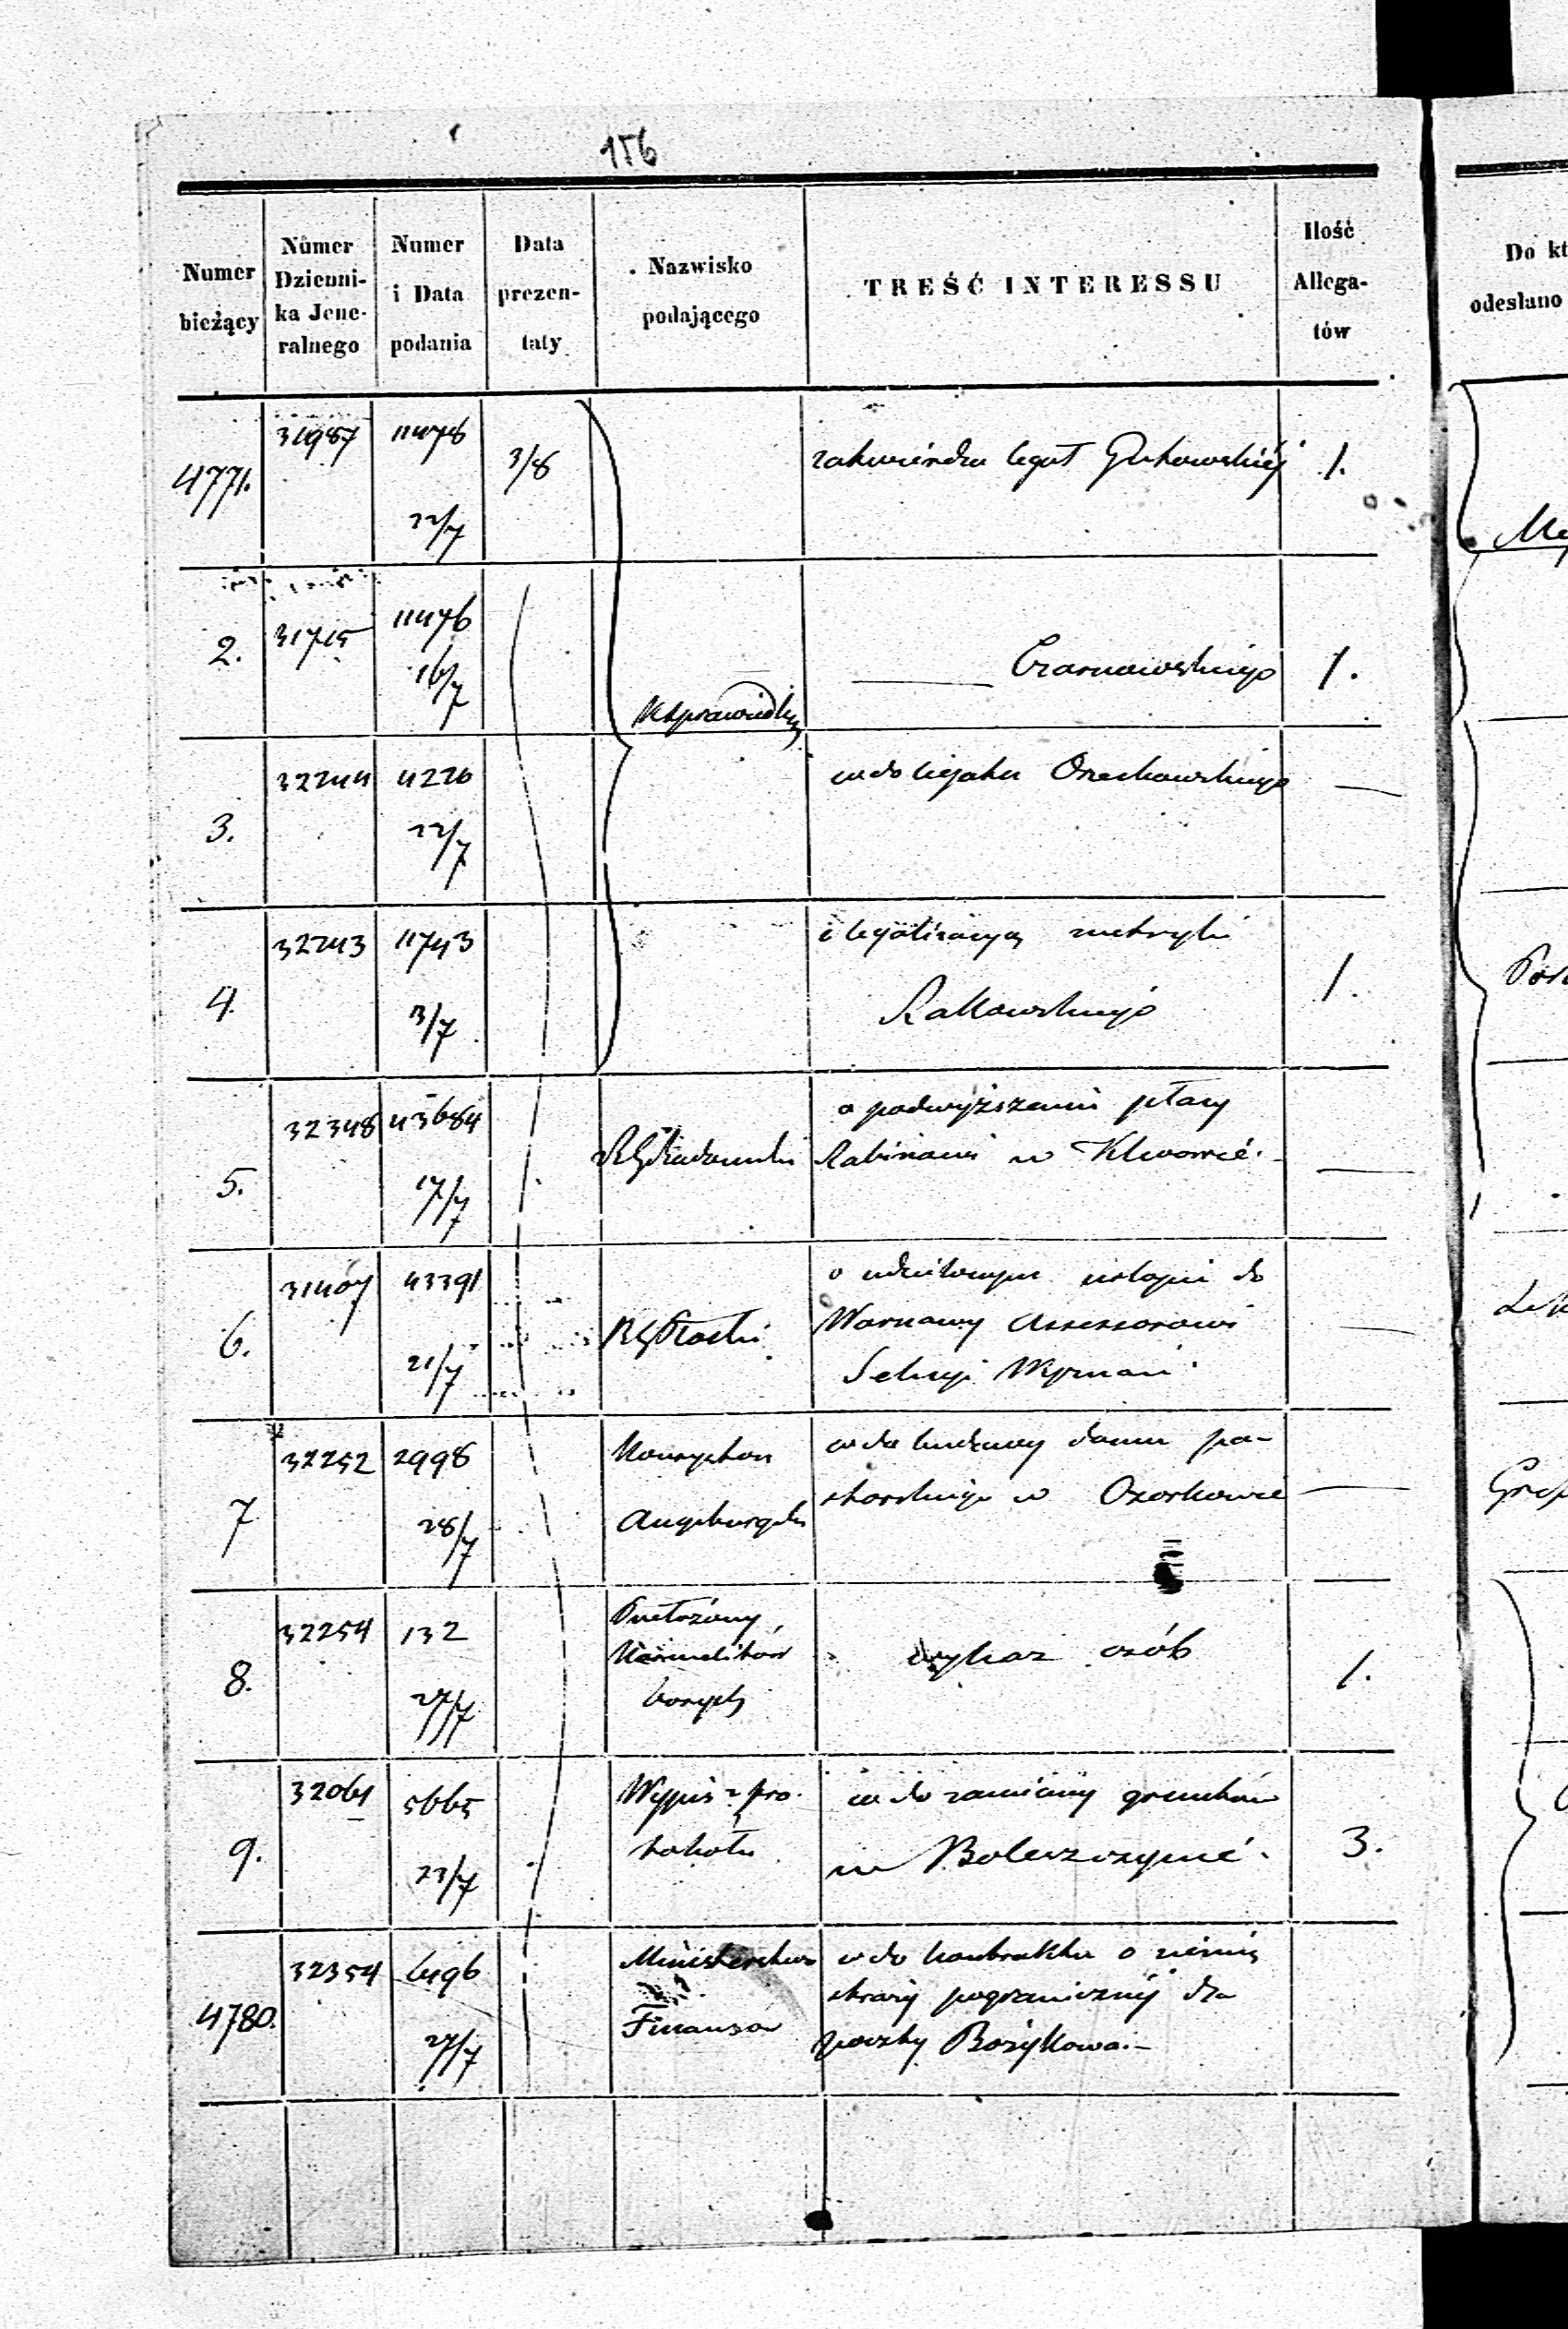 156
Numer bieżący | Numer Dzienni-ka Jene-ralnego | Numer i Data podania | Data prezen-taty | Nazwisko podającego | TREŚĆ INTERESSU | Ilość Allega-tów
Do kt
odesłano
4771. | 31987 | 11478 22/7 | 3/8 | | zatwierdza legat Gutowskiéj | 1.
2. | 31715 | 11476 16/7 | | KSprawiedliw | —— Czarnowskiego | 1.
3. | 32244 | 4226 22/7 | | | wdo legatu Orzechowskiego | —
4. | 32243 | 11743 13/7 | | | z legalizacyą metryki Rakowskiego | 1.
5. | 32348 | 43684 17/7 | | RGRadomski | o podwyższenie płacy Rabinowi w Klwowie. | —
6. | 31407 | 43391 21/7 | | RGPłocki | o udzielonym urlopie do Warszawy Assessorowi Sekcyi Wyznań | —
7 | 32252 | 2998 28/7 | | Konsystorz Augsburgski | wdo budowy domu pa-storskiego w Ozorkowie | —
8. | 32254 | 132 27/7 | | Przełożony Karmelitów bosych | wykaz osób | 1.
9. | 32061 | 5665 23/7 | | Wypis z pro-tokołu | wdo zamiany gruntów w Boleszczynie. | 3.
4780. | 32354 | 6496 27/7 | | Ministerstwo Finansów | wdo kontraktu o ziemię straży pogranicznéj dla